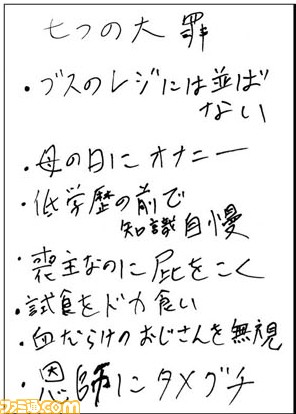 七つの大罪
・ブスのレジには並ば
ない
・母の日にオナニー
・低学歴の前で
知識自慢
・喪主なのに屁をこく
・試食をドカ食い
・血だらけのおじさんを無視
・恩師にタメグチ
ファミ通.com